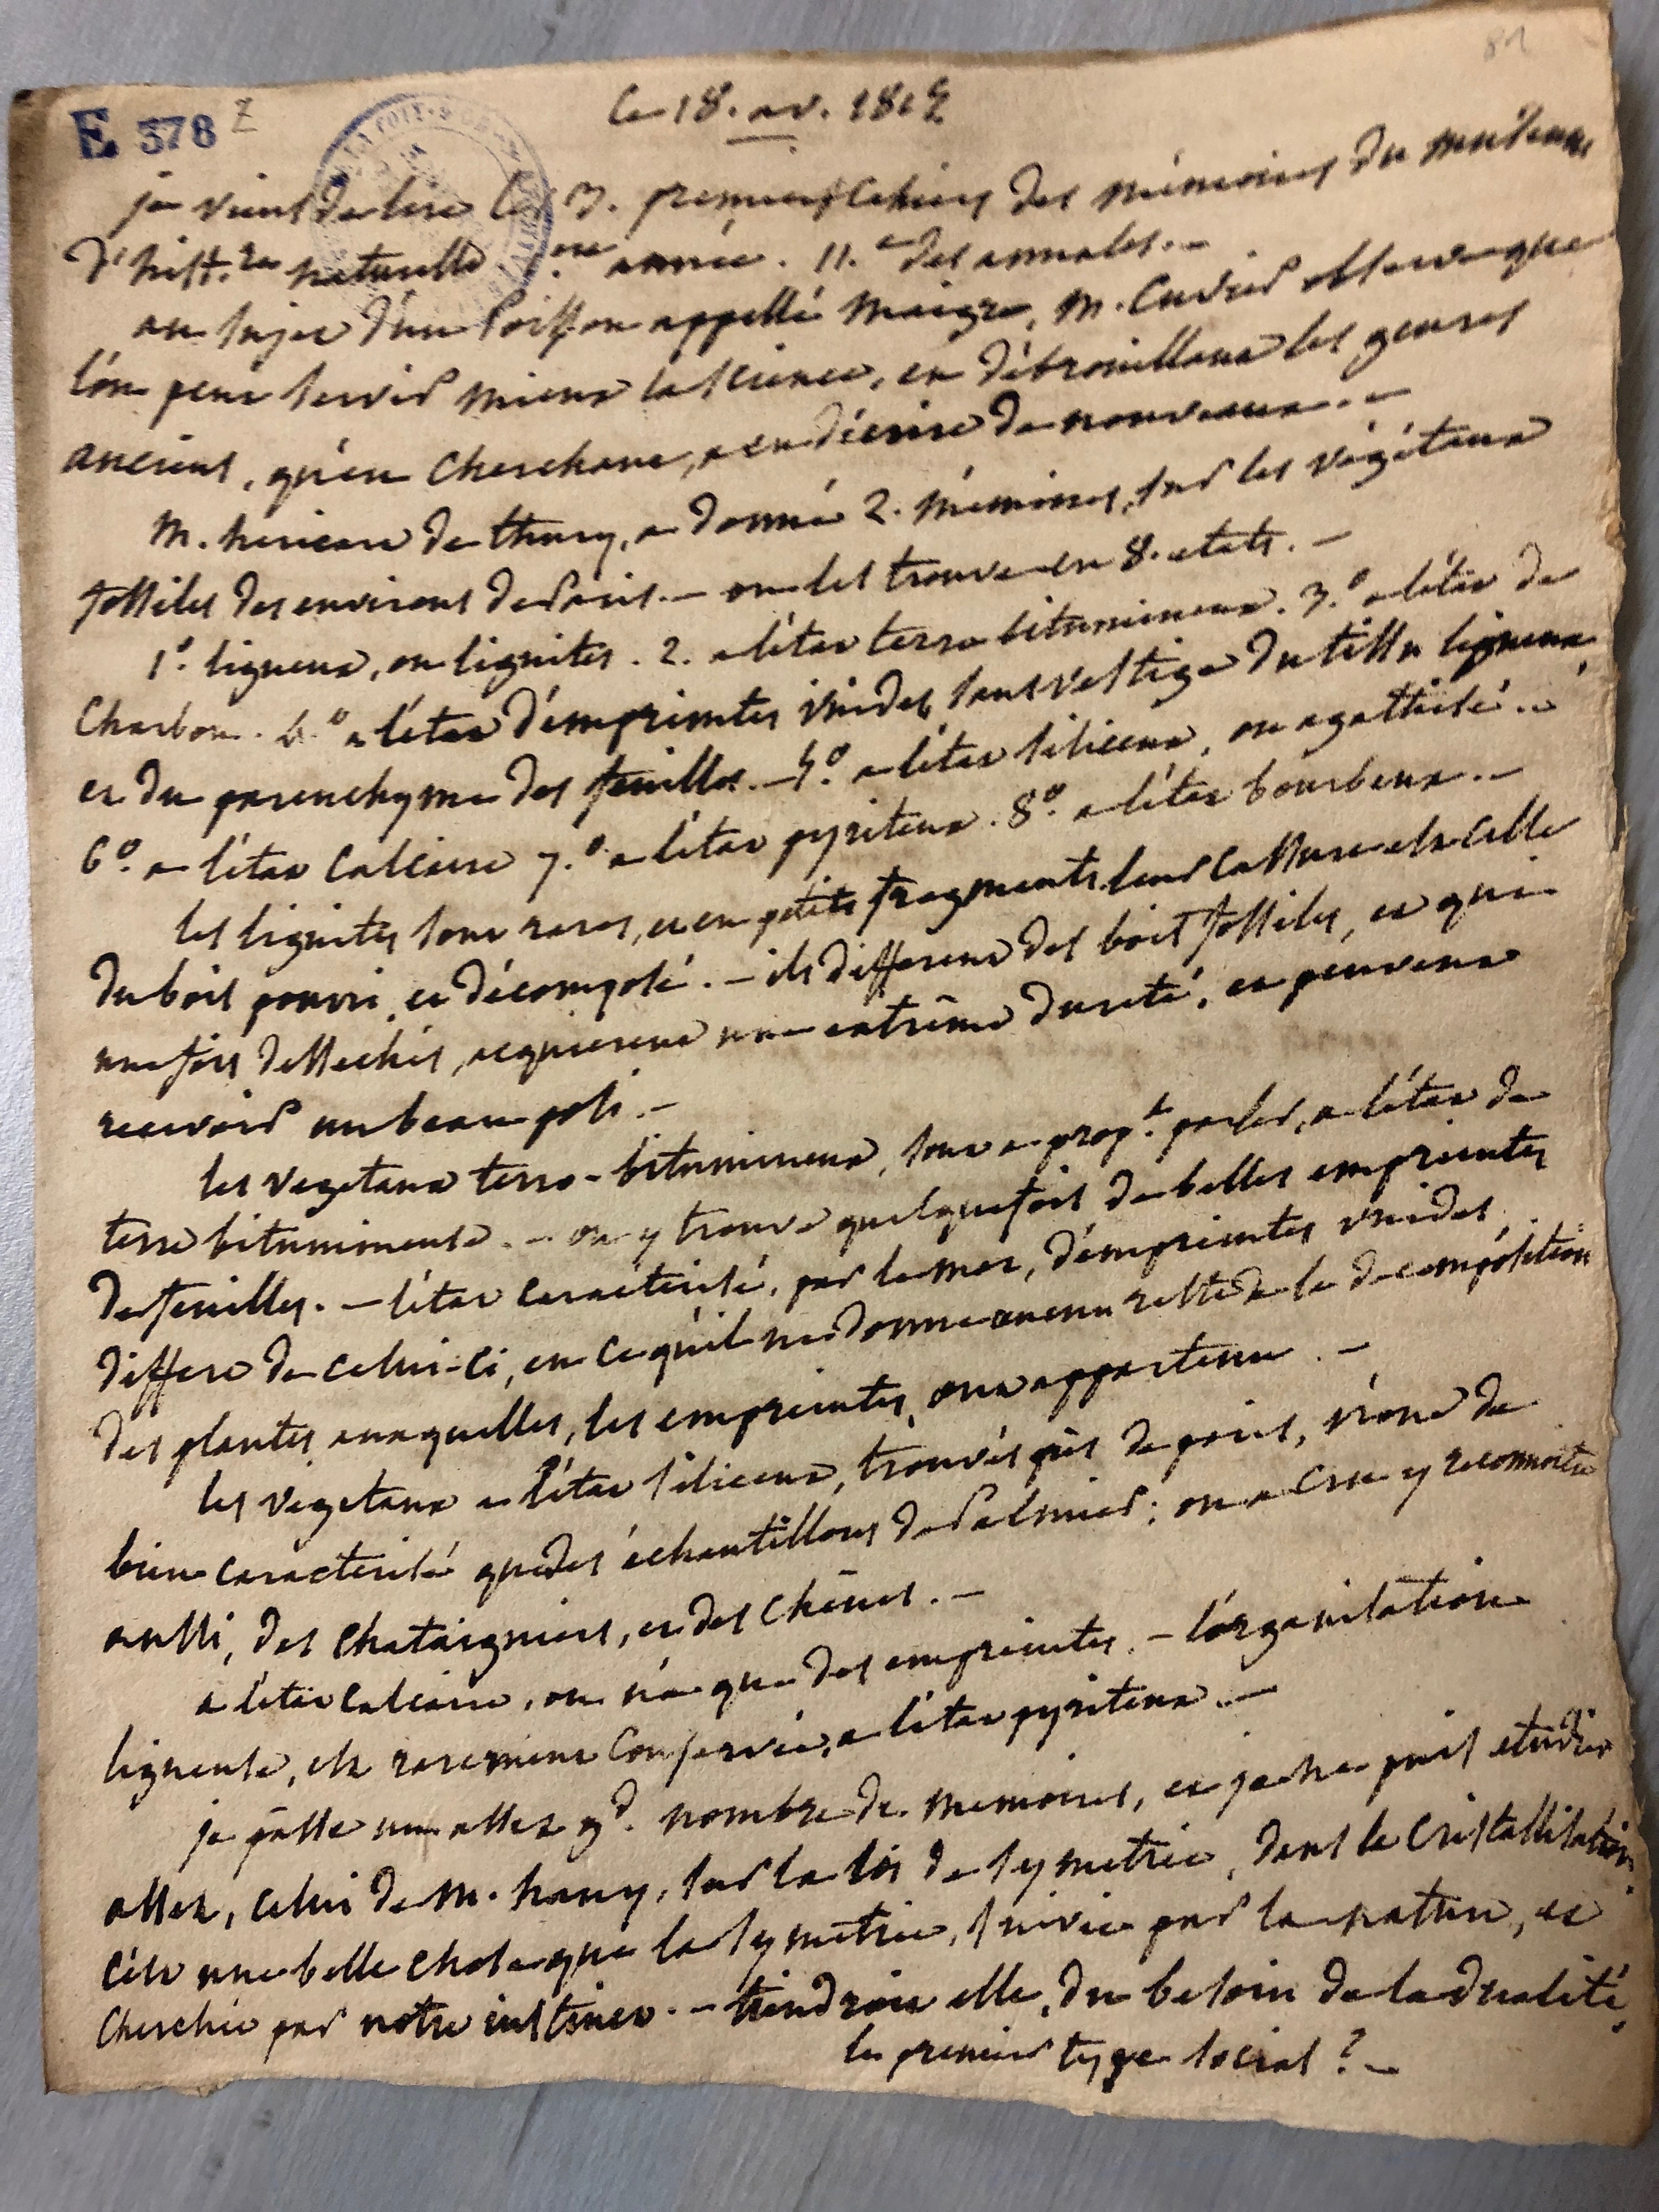 81
E 378 Z
Ce 18. av. 1815
je viens de lire les 3. premiers cahiers des mémoires du muséum
d'hist.re naturelle 1.ere année. 11.e des annales. -
au sujet d'un Poisson appellé Maigre, M. Cuvier observe que
l'on peut servir mieux la science, en débrouillant les genres
anciens, qu'en cherchant, a en décrire de nouveaux. -
M. hericart de thury, a donné 2. mémoires, sur les végétaux
fossiles des environs de Paris. - on les trouve en 8. etats. -
1.° ligneux, ou lignites. 2. a l'état terro bitumineux. 3.° a l'état de
Charbon. 4.° a l'état d'empreintes vuides, sans vestige du tissu ligneux,
et du parenchyme des feuilles. - 5.° a l'état siliceux, ou agathisé. -
6.° a l'état calcaire 7.° a l'état pyriteux. 8.° a l'état bourbeux. -
les lignites sont rares, et en petits fragments leur cassure est celle
du bois pourri, et décomposé. - ils different des bois fossiles, et qui
une fois dessechés, acquierent une extrême dureté, et peuvent
recevoir un beau poli. -
les vegetaux terro-bitumineux, sont a prop.t parler, a l'état de
terre bitumineuse. - on y trouve quelquefois de belles empreintes
de feuilles. - l'état caracterisé, par le mot, d'empreintes vuides,
differe de celui-ci, en ce qu'il ne donne aucun reste de la decomposition
des plantes auxquelles, les empreintes, ont appartenu. -
les végetaux a l'état siliceux, trouvés près de paris, n'ont de
bien caracterisé que des échantillons de Palmier; on a cru y reconnoitre
aussi, des chataigniers, et des chênes. -
a l'état calcaire, on n'a que des empreintes. - l'organisation
ligneuse, est rarement conservée, a l'état pyriteux. -
je passe un assez g.d nombre de mémoires, et je ne puis etudier
assez, celui de M. hauy, sur la loi de symetrie, dans la cristallisation.
c'est une belle chose que la symetrie, suivie par la nature, et
cherchée par notre instinct. - tiendroit elle, du besoin de la dualité,
le premier type social? -